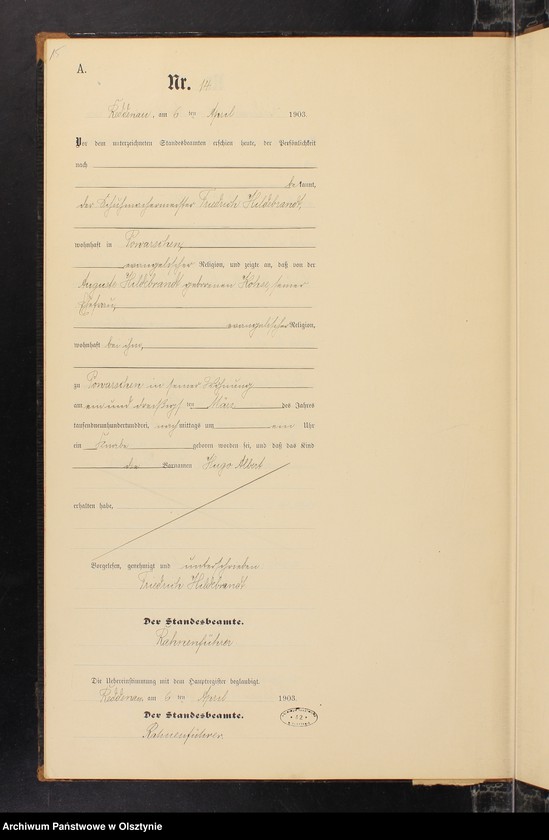 15
A.
Nr. 14
Reddenau, am 6 ten April 1903.
Vor dem unterzeichneten Standesbeamten erschien heute, der Persönlichkeit
nach
be kannt,
der Schuhmachermeister Friedrich Hildebrandt,
wohnhaft in Powarschen,
evangelischer Religion, und zeigte an, daß von der
Auguste Hildebrandt geborenen seiner
Ehefrau,
evangelischer Religion,
wohnhaft bei ihm,
zu Powarschen in seiner Wohnung
am ein und dreißigsten März des Jahres
tausendneunhundertunddrei, nachmittags um ein Uhr
ein Knabe geboren worden sei, und daß das Kind
die Vornamen Hugo Albert
erhalten habe,
Vorgelesen, genehmigt und unterschrieben
Friedrich Hildebrandt
Der Standesbeamte.
Rahnenführer
Die Uebereinstimmung mit dem Hauptregister beglaubigt.
Reddenau, am 6 ten April 1903.
Der Standesbeamte.
Rahnenführer.
Archiwum Państwowe w Olsztynie